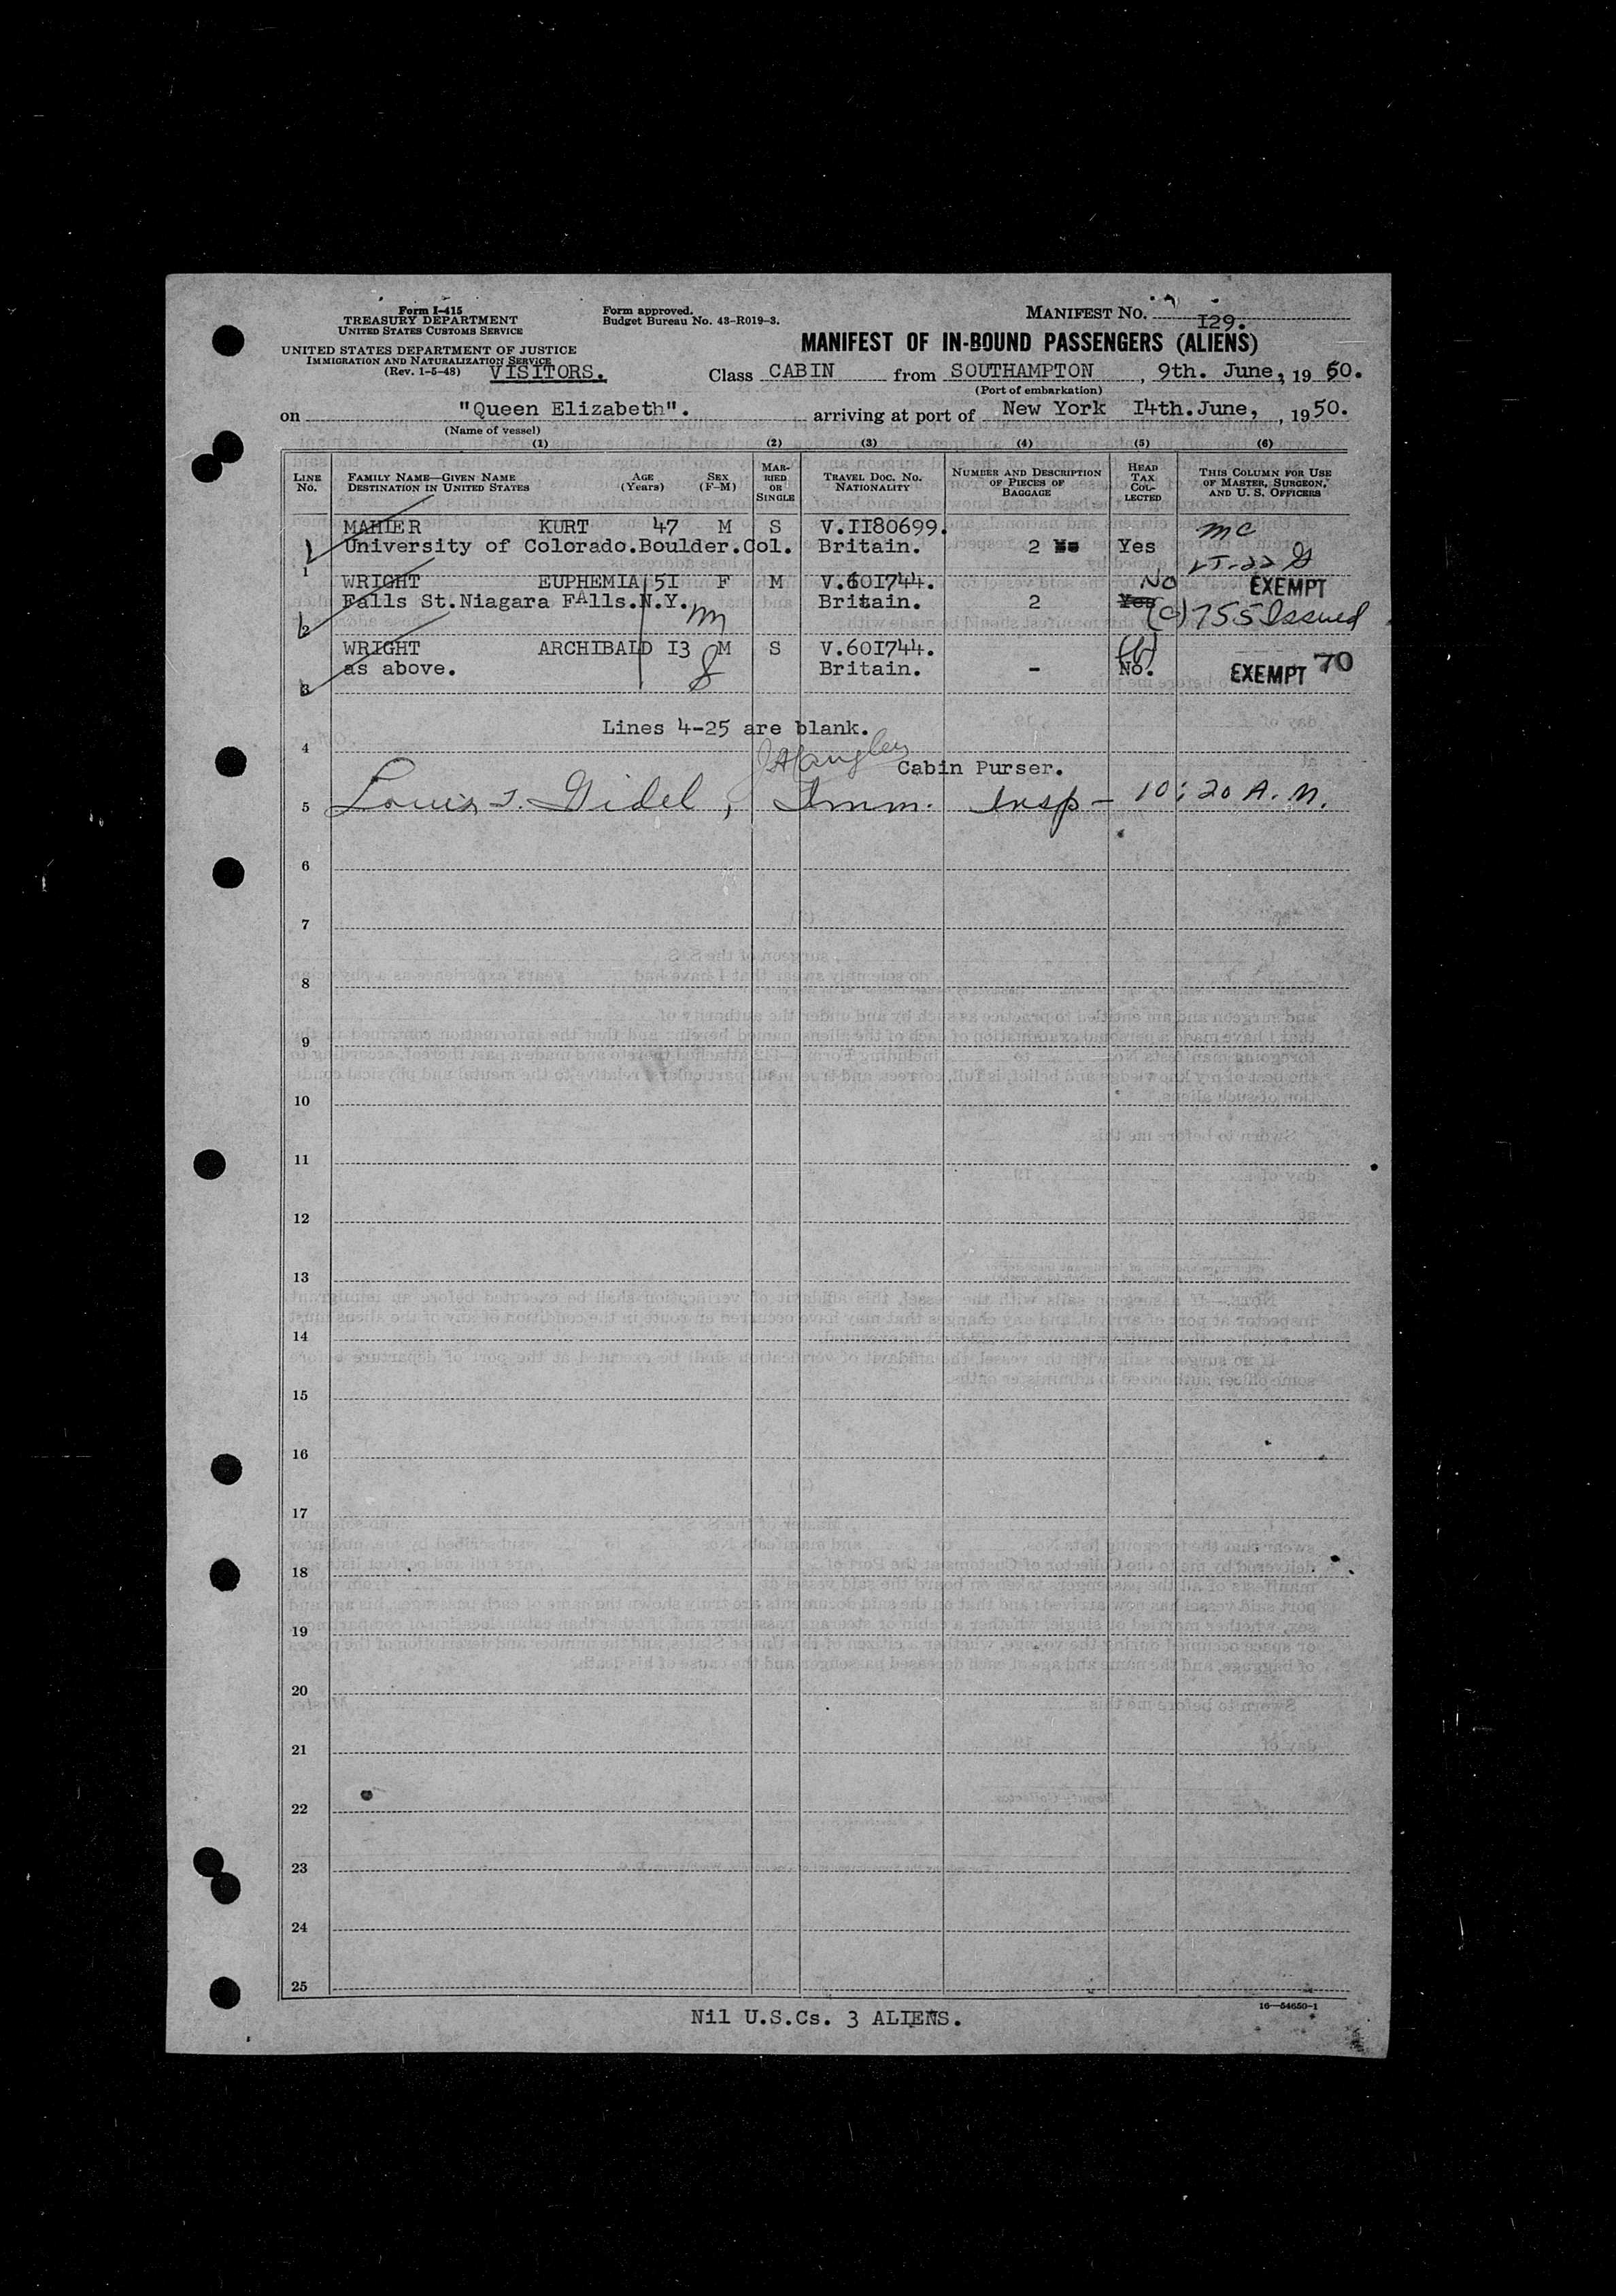 Form I-415
TREASURY DEPARTMENT
UNITED STATES CUSTOMS SERVICE
Form approved.
Budget Bureau No. 43-R019-3.
MANIFEST NO. I29.
UNITED STATES DEPARTMENT OF JUSTICE
IMMIGRATION AND NATURALIZATION SERVICE
(Rev. 1-5-48) VISITORS.
MANIFEST OF IN-BOUND PASSENGERS (ALIENS)
Class CABIN from SOUTHAMPTON, 9th. June, 19 50.
(Port of embarkation)
on "Queen Elizabeth". arriving at port of New York I4th.June, , 19 50.
(Name of vessel)
(1) (2) (3) (4) (5) (6)
LINE NO. FAMILY NAME—GIVEN NAME DESTINATION IN UNITED STATES AGE (Years) SEX (F-M) MARRIED OR SINGLE TRAVEL DOC. NO. NATIONALITY NUMBER AND DESCRIPTION OF PIECES OF BAGGAGE HEAD TAX COLLECTED THIS COLUMN FOR USE OF MASTER, SURGEON, AND U. S. OFFICERS
MAHIER KURT 47 M S V.II80699. mc
University of Colorado.Boulder.Col. Britain. 2 Yes
1
WRIGHT EUPHEMIA 5I F M V.60I744. No EXEMPT
Falls St.Niagara FAlls.N.Y. m Britain. 2 Yes (C) 755 Issued
2
WRIGHT ARCHIBALD I3 M S V.60I744.
as above. Britain. - No. EXEMPT 70
3
Lines 4-25 are blank.
4
Cabin Purser.
5 Louis J. Gidel, Imm. Insp - 10:20 A.M.
6
7
8
9
10
11
12
13
14
15
16
17
18
19
20
21
22
23
24
25
Nil U.S.Cs. 3 ALIENS.
16—54650-1